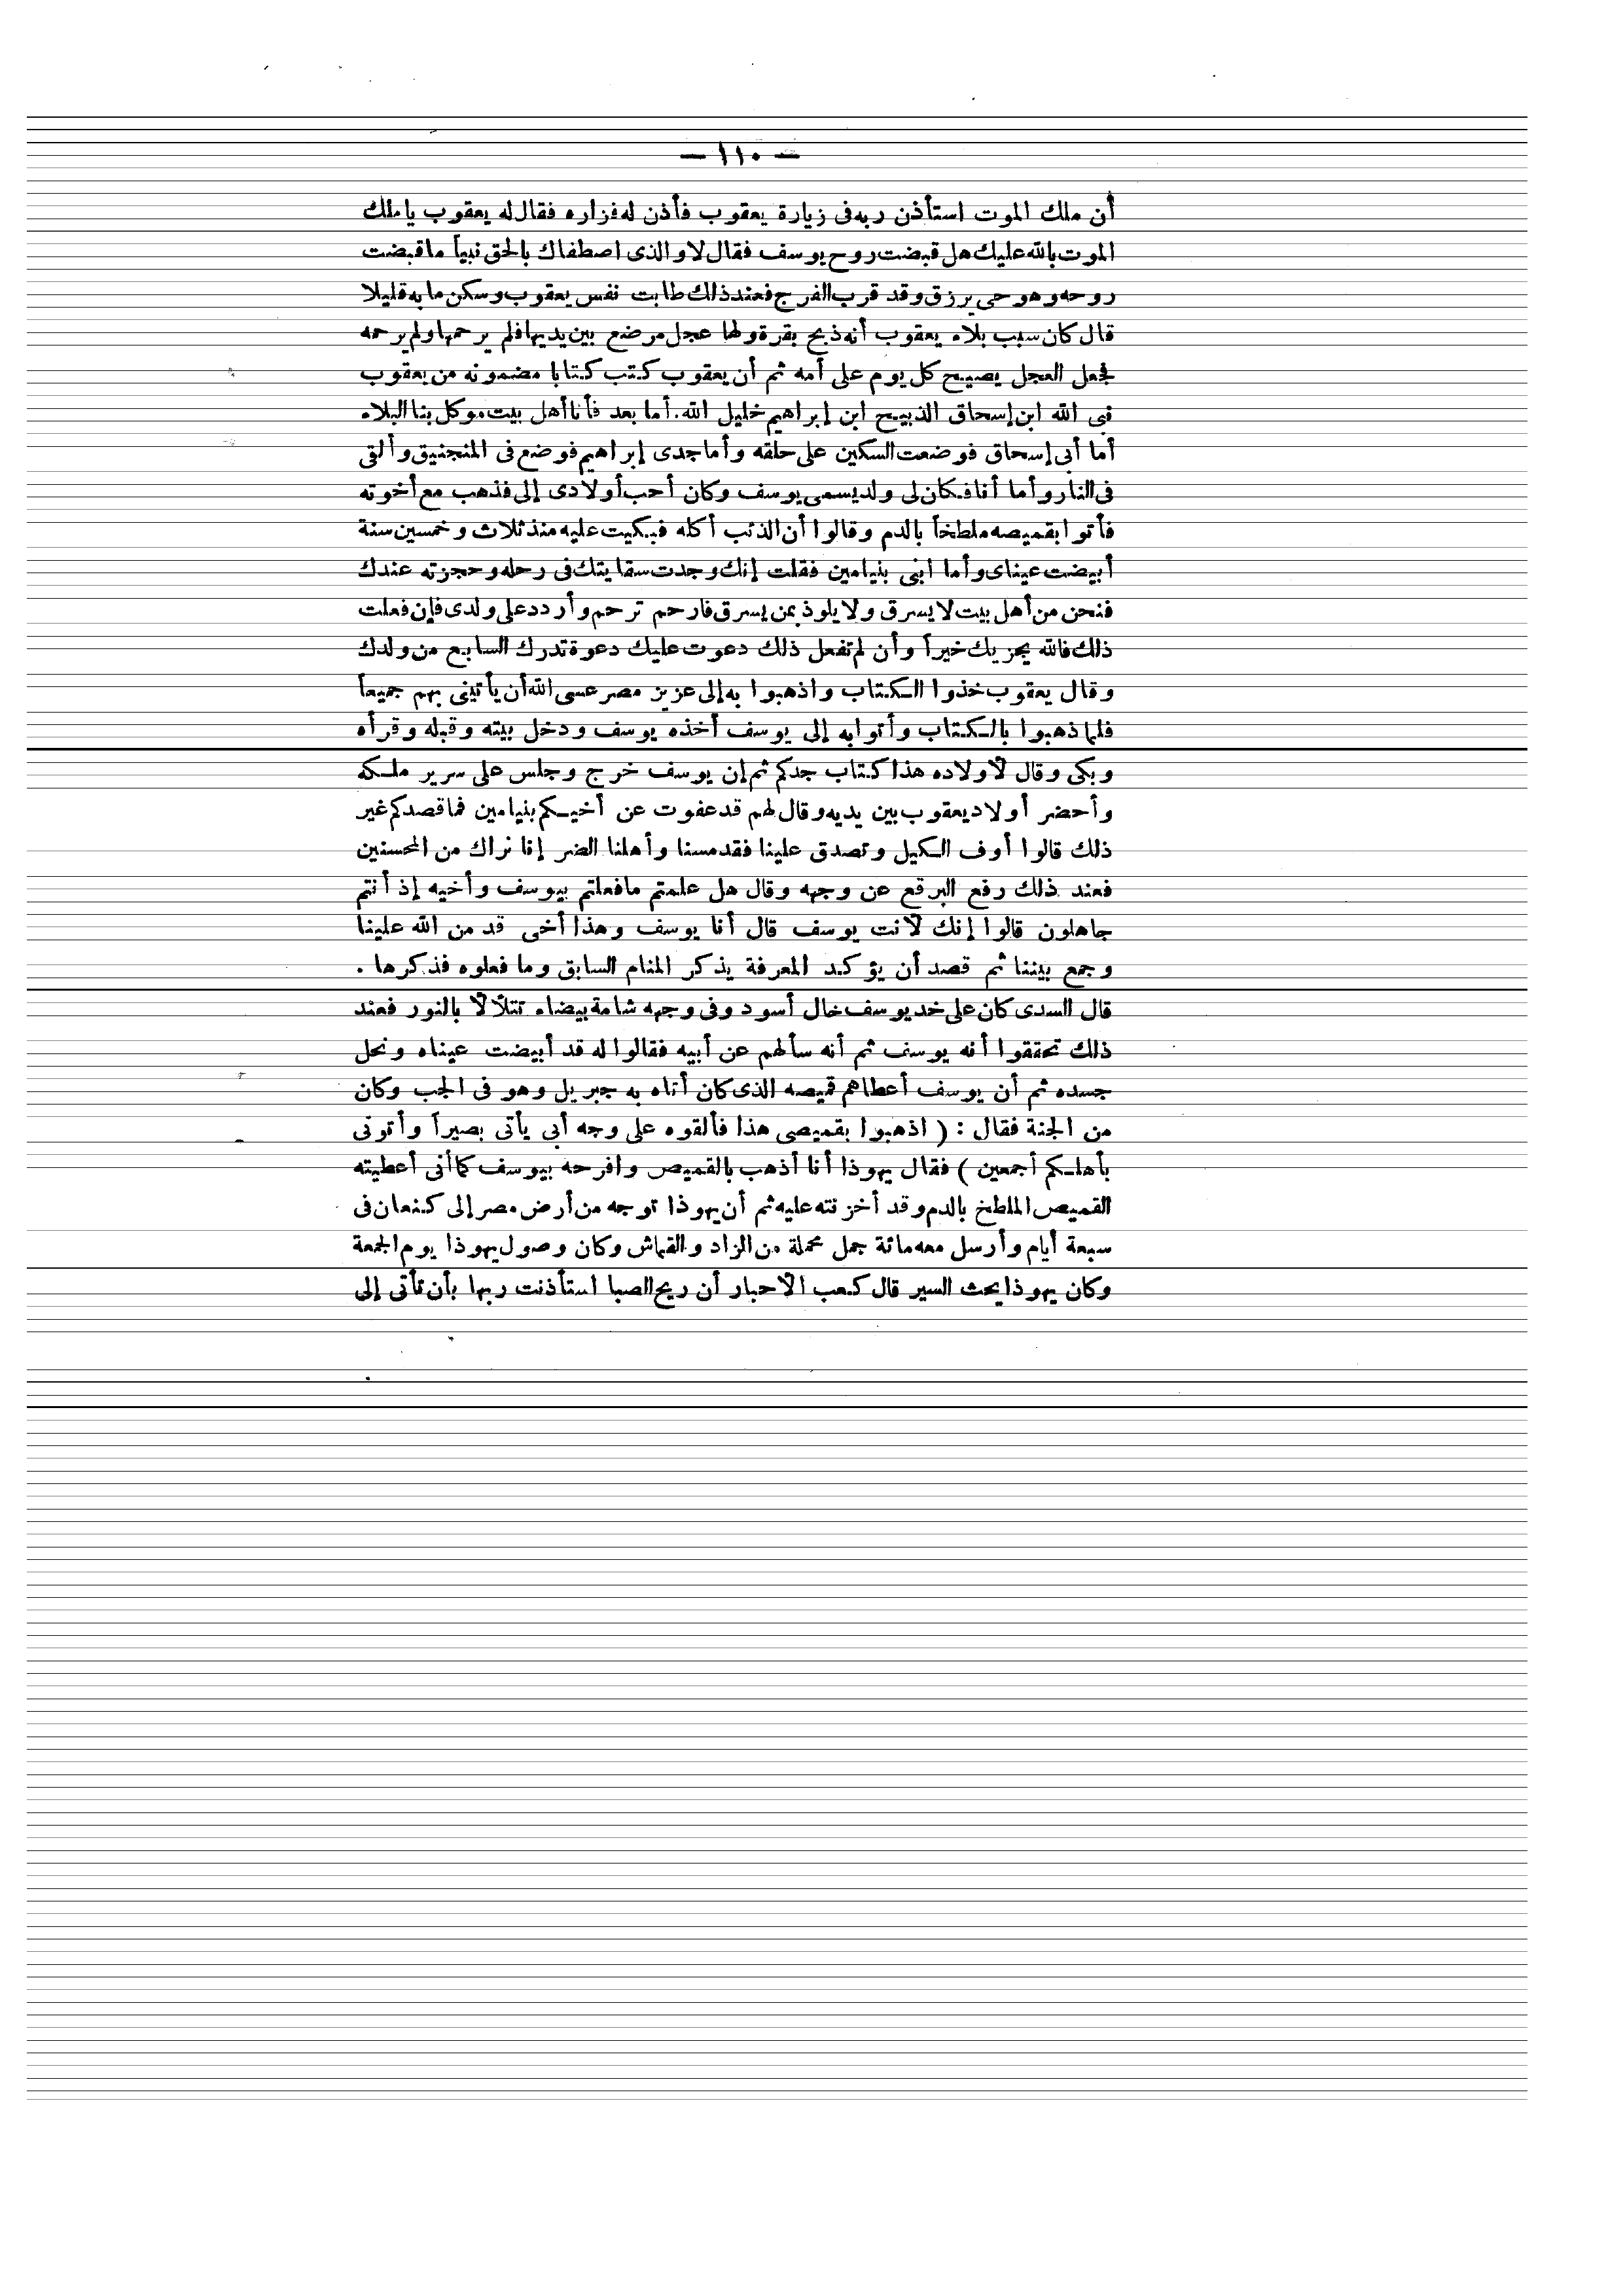 — ١١٠ —
أن ملك الموت استأذن ربه فى زيارة يعقوب فأذن له فزاره فقال له يعقوب يا ملك
الموت بالله عليك هل قبضت روح يوسف فقال لا والذى اصطفاك بالحق نبياً ما قبضت
روحه وهو حى يرزق وقد قرب الفرج فعند ذلك طابت نفس يعقوب وسكن ما به قليلا
قال كان سبب بلاء يعقوب أنه ذبح بقرة ولها عجل مرضع بين يديها فلم يرحمها ولم يرحمه
فجعل العجل يصيح كل يوم على أمه ثم أن يعقوب كتب كتابا مضمونه من يعقوب
نبى الله ابن إسحاق الذبيح ابن إبراهيم خليل الله. أما بعد فأنا أهل بيت موكل بنا البلاء
أما أبى إسحاق فوضعت السكين على حلقه وأما جدى إبراهيم فوضع فى المنجنيق وألقى
فى النار وأما أنا فكان لى ولد يسمى يوسف وكان أحب أولادى إلى فذهب مع أخوته
فأتوا بقميصه ملطخاً بالدم وقالوا أن الذئب أكله فبكيت عليه منذ ثلاث وخمسين سنة
أبيضت عيناى وأما ابنى بنيامين فقلت إنك وجدت سقايتك فى رحله وحجزته عندك
فنحن من أهل بيت لا يسرق ولا يلوذ بمن يسرق فارحم ترحم وأردد على ولدى فإن فعلت
ذلك فالله يجزيك خيراً وأن لم تفعل ذلك دعوت عليك دعوة تدرك السابع من ولدك
وقال يعقوب خذوا الكتاب واذهبوا به إلى عزيز مصر عسى الله أن يأتينى بهم جميعاً
فلما ذهبوا بالكتاب وأتوا به إلى يوسف أخذه يوسف ودخل بيته وقبله وقرأه
وبكى وقال لأولاده هذا كتاب جدكم ثم إن يوسف خرج وجلس على سرير ملكه
وأحضر أولاد يعقوب بين يديه وقال لهم قد عفوت عن أخيكم بنيامين فما قصدكم غير
ذلك قالوا أوف الكيل وتصدق علينا فقد مسنا وأهلنا الضر إنا نراك من المحسنين
فعند ذلك رفع البرقع عن وجهه وقال هل علمتم ما فعلتم بيوسف وأخيه إذ أنتم
جاهلون قالوا إنك لأنت يوسف قال أنا يوسف وهذا أخى قد من الله علينا
وجمع بيننا ثم قصد أن يؤكد المعرفة يذكر المنام السابق وما فعلوه فذكرها .
قال السدى كان على خد يوسف خال أسود وفى وجهه شامة بيضاء تتلألأ بالنور فعند
ذلك تحققوا أنه يوسف ثم أنه سألهم عن أبيه فقالوا له قد أبيضت عيناه ونحل
جسده ثم أن يوسف أعطاهم قميصه الذى كان أتاه به جبريل وهو فى الجب وكان
من الجنة فقال : ( اذهبوا بقميصى هذا فألقوه على وجه أبى يأتى بصيراً وأتونى
بأهلكم أجمعين ) فقال يهوذا أنا أذهب بالقميص وافرحه بيوسف كما أنى أعطيته
القميص الملطخ بالدم وقد أخزنته عليه ثم أن يهوذا توجه من أرض مصر إلى كنعان فى
سبعة أيام وأرسل معه مائة جمل محملة من الزاد والقماش وكان وصول يهوذا يوم الجمعة
وكان يهوذا يحث السير قال كعب الأحبار أن ريح الصبا استأذنت ربها بأن تأتى إلى